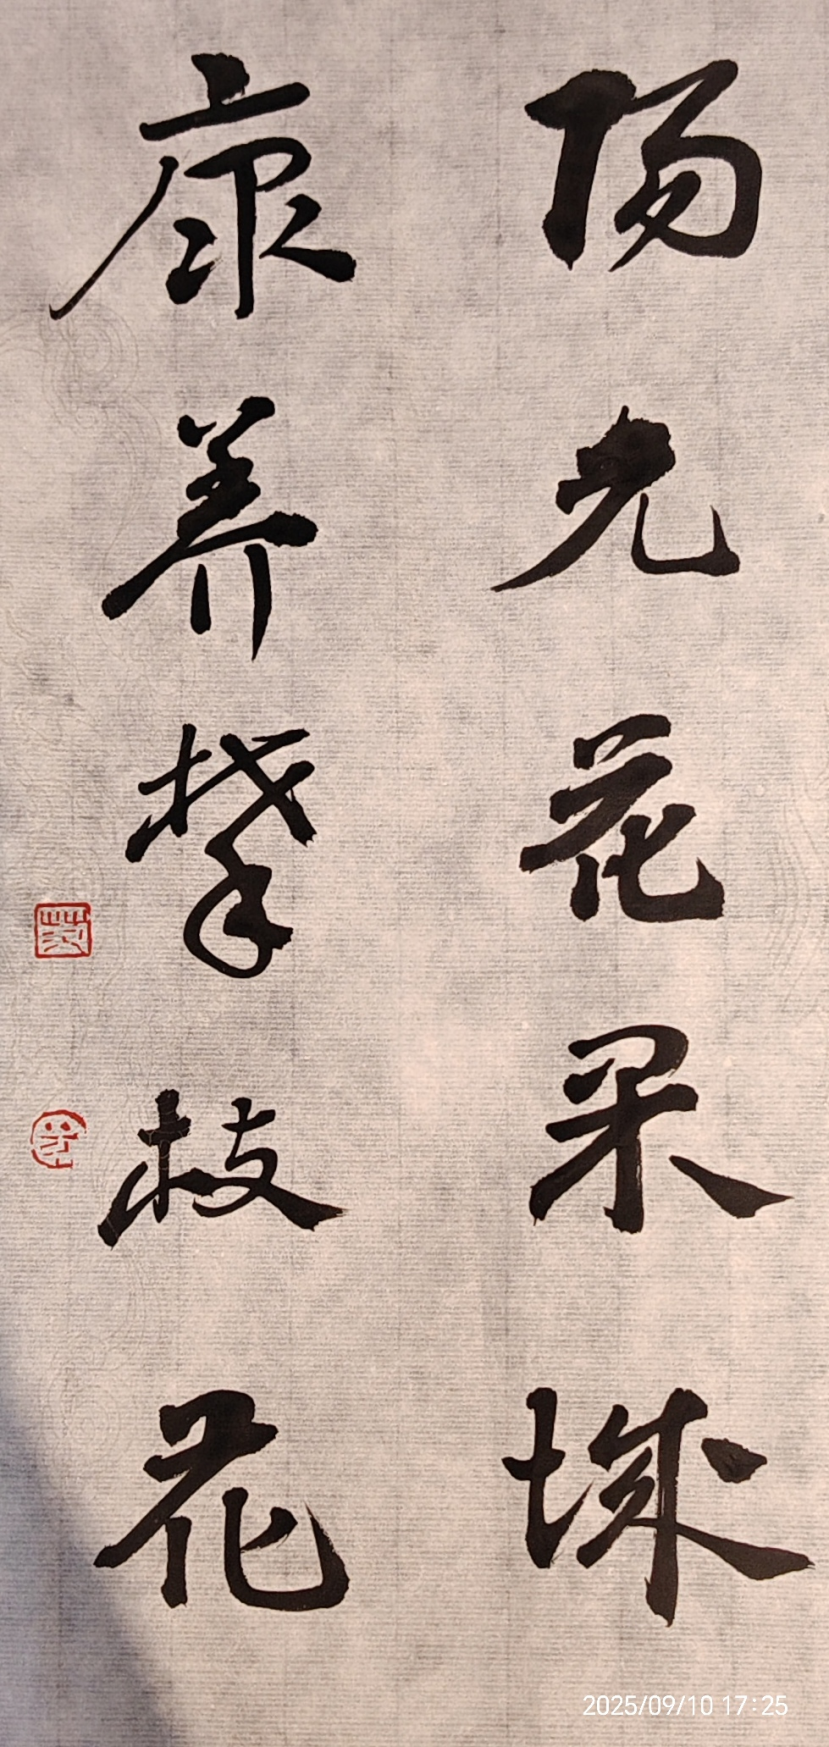 阳光花果城
康养攀枝花
2025/09/10 17:25